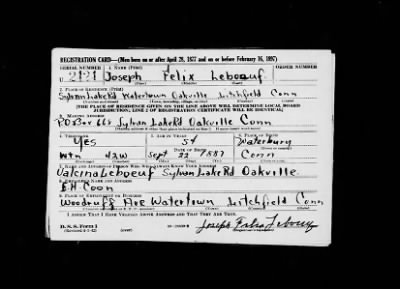 REGISTRATION CARD—(Men born on or after April 28, 1877 and on or before February 16, 1897)
SERIAL NUMBER 1. NAME (Print) ORDER NUMBER
U 2121 Joseph Felix Leboeuf
2. PLACE OF RESIDENCE (Print)
Sylvan Lake Rd Watertown Oakville Litchfield Conn
[THE PLACE OF RESIDENCE GIVEN ON THE LINE ABOVE WILL DETERMINE LOCAL BOARD
JURISDICTION; LINE 2 OF REGISTRATION CERTIFICATE WILL BE IDENTICAL]
3. MAILING ADDRESS
P O Box 668 Sylvan Lake Rd Oakville Conn
4. TELEPHONE 5. AGE IN YEARS 6. PLACE OF BIRTH
Yes 54 Waterbury
DATE OF BIRTH
Wtn Sept 22 1887 Conn
7. NAME AND ADDRESS OF PERSON WHO WILL ALWAYS KNOW YOUR ADDRESS
Leboeuf Sylvan Lake Rd Oakville
8. EMPLOYER'S NAME AND ADDRESS
E.H. Coon
9. PLACE OF EMPLOYMENT OR BUSINESS
Woodruff Ave Watertown Litchfield Conn
I AFFIRM THAT I HAVE VERIFIED ABOVE ANSWERS AND THAT THEY ARE TRUE.
D. S. S. Form 1
(Revised 4-1-42) Joseph Felix Leboeuf